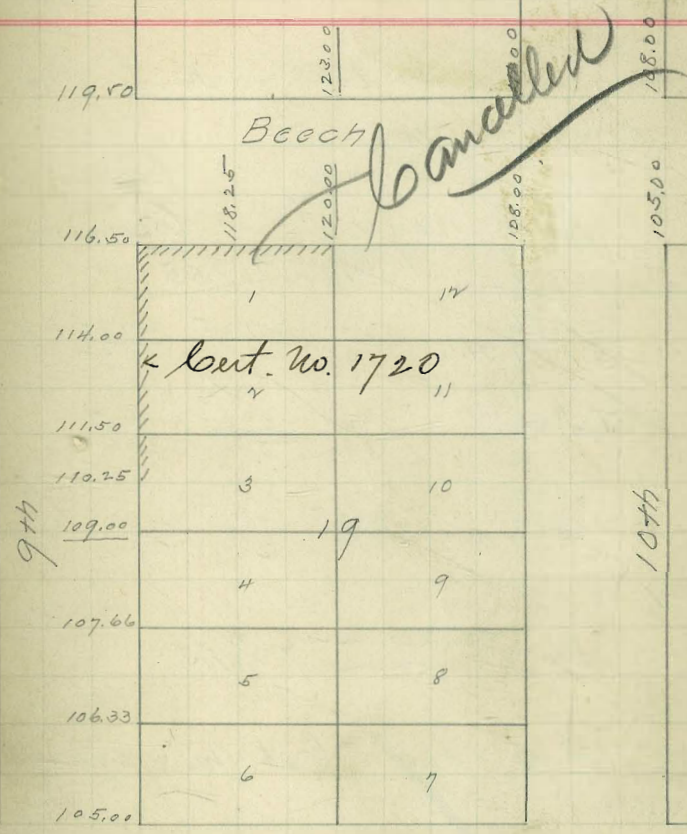 123.00
108.00
119.50
Beech
Cancelled
118.25
120.00
108.00
105.00
116.50
1
12
114.00
Cert. No. 1720
2
11
111.50
110.25
3
10
9th
109.00
19
10th
4
9
107.66
5
8
106.33
6
7
105.00